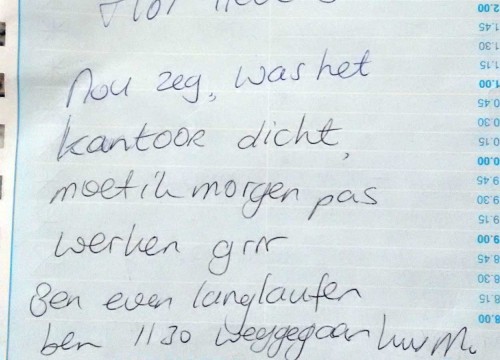 Nou zeg, was het
kantoor dicht,
moet ik morgen pas
werken grrr
Ben even langlaufen
ben 1130 weggegaan
2.00
1.45
1.30
1.15
1.00
0.45
0.30
0.15
0.00
9.45
9.30
9.15
9.00
8.45
8.30
8.15
8.00